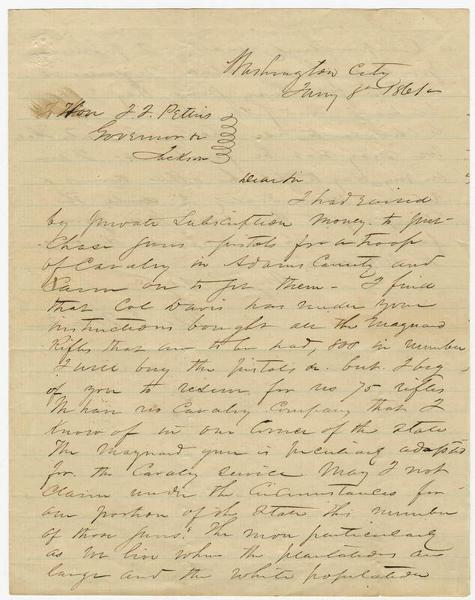 Washington City
Jany 8th 1861
Hon J. J. Pettus
Governor &c
Jackson
Dear Sir
I had raised
by private Subscription money to pur-
chase guns & pistols for a troop
of Cavalry in Adams County and
came on to get them - I find
that Col Davis has under your
instructions bought all the Maynard
Rifles that are to be had, 800 in number
I will buy the pistols &c. but I beg
of you to reserve for us 75 rifles
We have no Cavalry Company that I
know of in our Corner of the State
The Maynard gun is peculiarly adapted
for the Cavalry service May I not
claim under the circumstances for
our portion of the State this number
of those guns? The more particularly
as we live where the plantations are
large and the white population